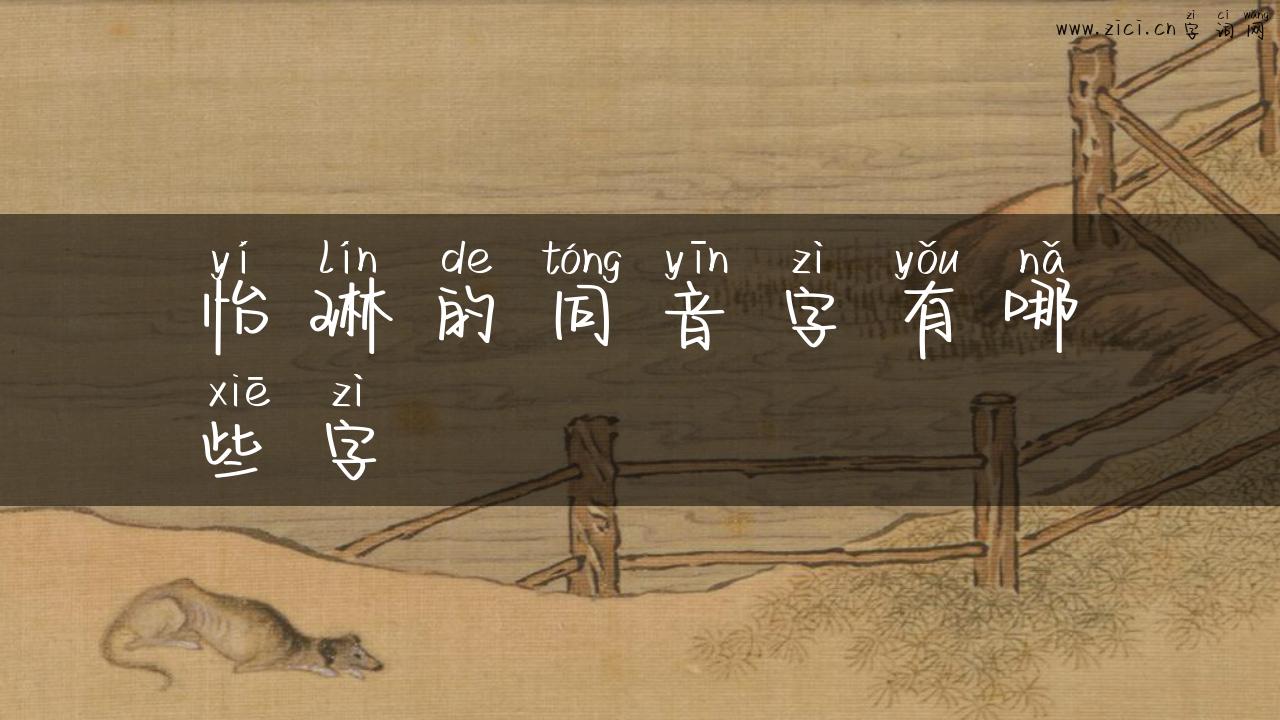 zì cí wǎng
www.zici.cn字词网
yí lín de tóng yīn zì yǒu nǎ
怡琳的同音字有哪
xiē zì
些字